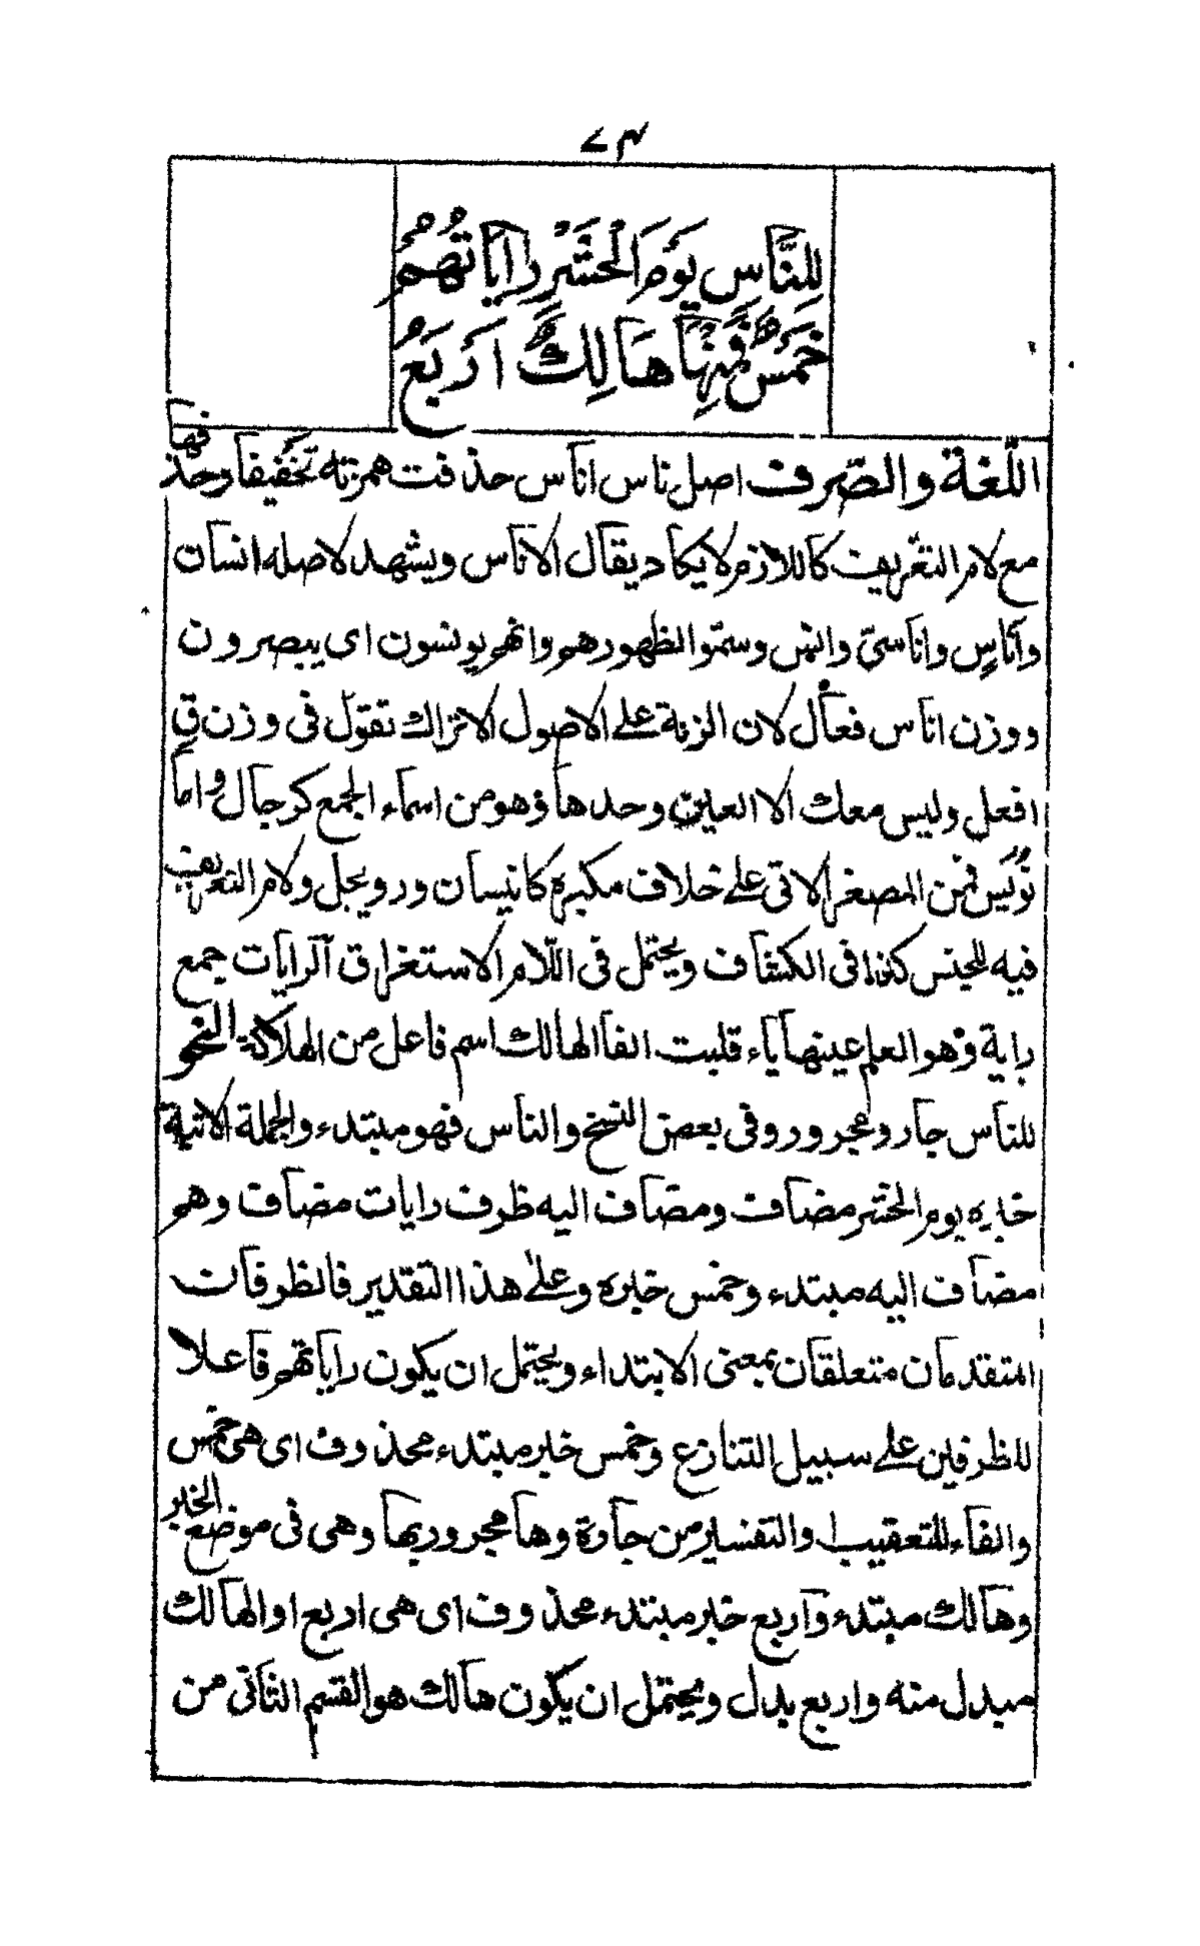 ٧٤
لِلنَّاسِ يَوْمَ الْحَشْرِ رَايَاتُهُمُ
خَمْسٌ فَمِنْهَا هَالِكٌ اَرْبَعُ
اللّغة والصّرف اصل ناس اناس حذفت همزته تخفيفا وحذفها
مع لام التعريف كاللازم لا يكاد يقال الاناس ويشهد لاصله انسان
واناسٍ واناسيّ وانس وسمّوا لظهورهم وانهم يونسون اى يبصرون
ووزن اناس فعال لان الزنة على الاصول الا تراك تقول فى وزن ق
افعل وليس معك الا العين وحدها وهو من اسماء الجمع كرجال واما
نُوَيس فمن المصغر الاتى على خلاف مكبره كانيسان ورويجل ولام التعريف
فيه للجنس كذا فى الكشاف ويحتمل فى اللّام الاستغراق الرايات جمع
راية وهو العلم عينها ياء قلبت الفا الهالك اسم فاعل من الهلاكة النحو
للناس جار ومجرور وفى بعض النسخ والناس فهو مبتدء والجملة الاتية
خبره يوم الحشر مضاف ومضاف اليه ظرف رايات مضاف وهم
مضاف اليه مبتدء وخمس خبره وعلى هذا التقدير فالظرفان
المتقدمان متعلقان بمعنى الابتداء ويحتمل ان يكون راياتهم فاعلا
للظرفين على سبيل التنازع وخمس خبر مبتدء محذوف اى هى خمس
والفاء للتعقيب والتفسير من جارة وها مجرور بها وهى فى موضع الخبر
وهالك مبتدء واربع خبر مبتدء محذوف اى هى اربع او الهالك
مبدل منه واربع بدل ويحتمل ان يكون هالك هو القسم الثانى من